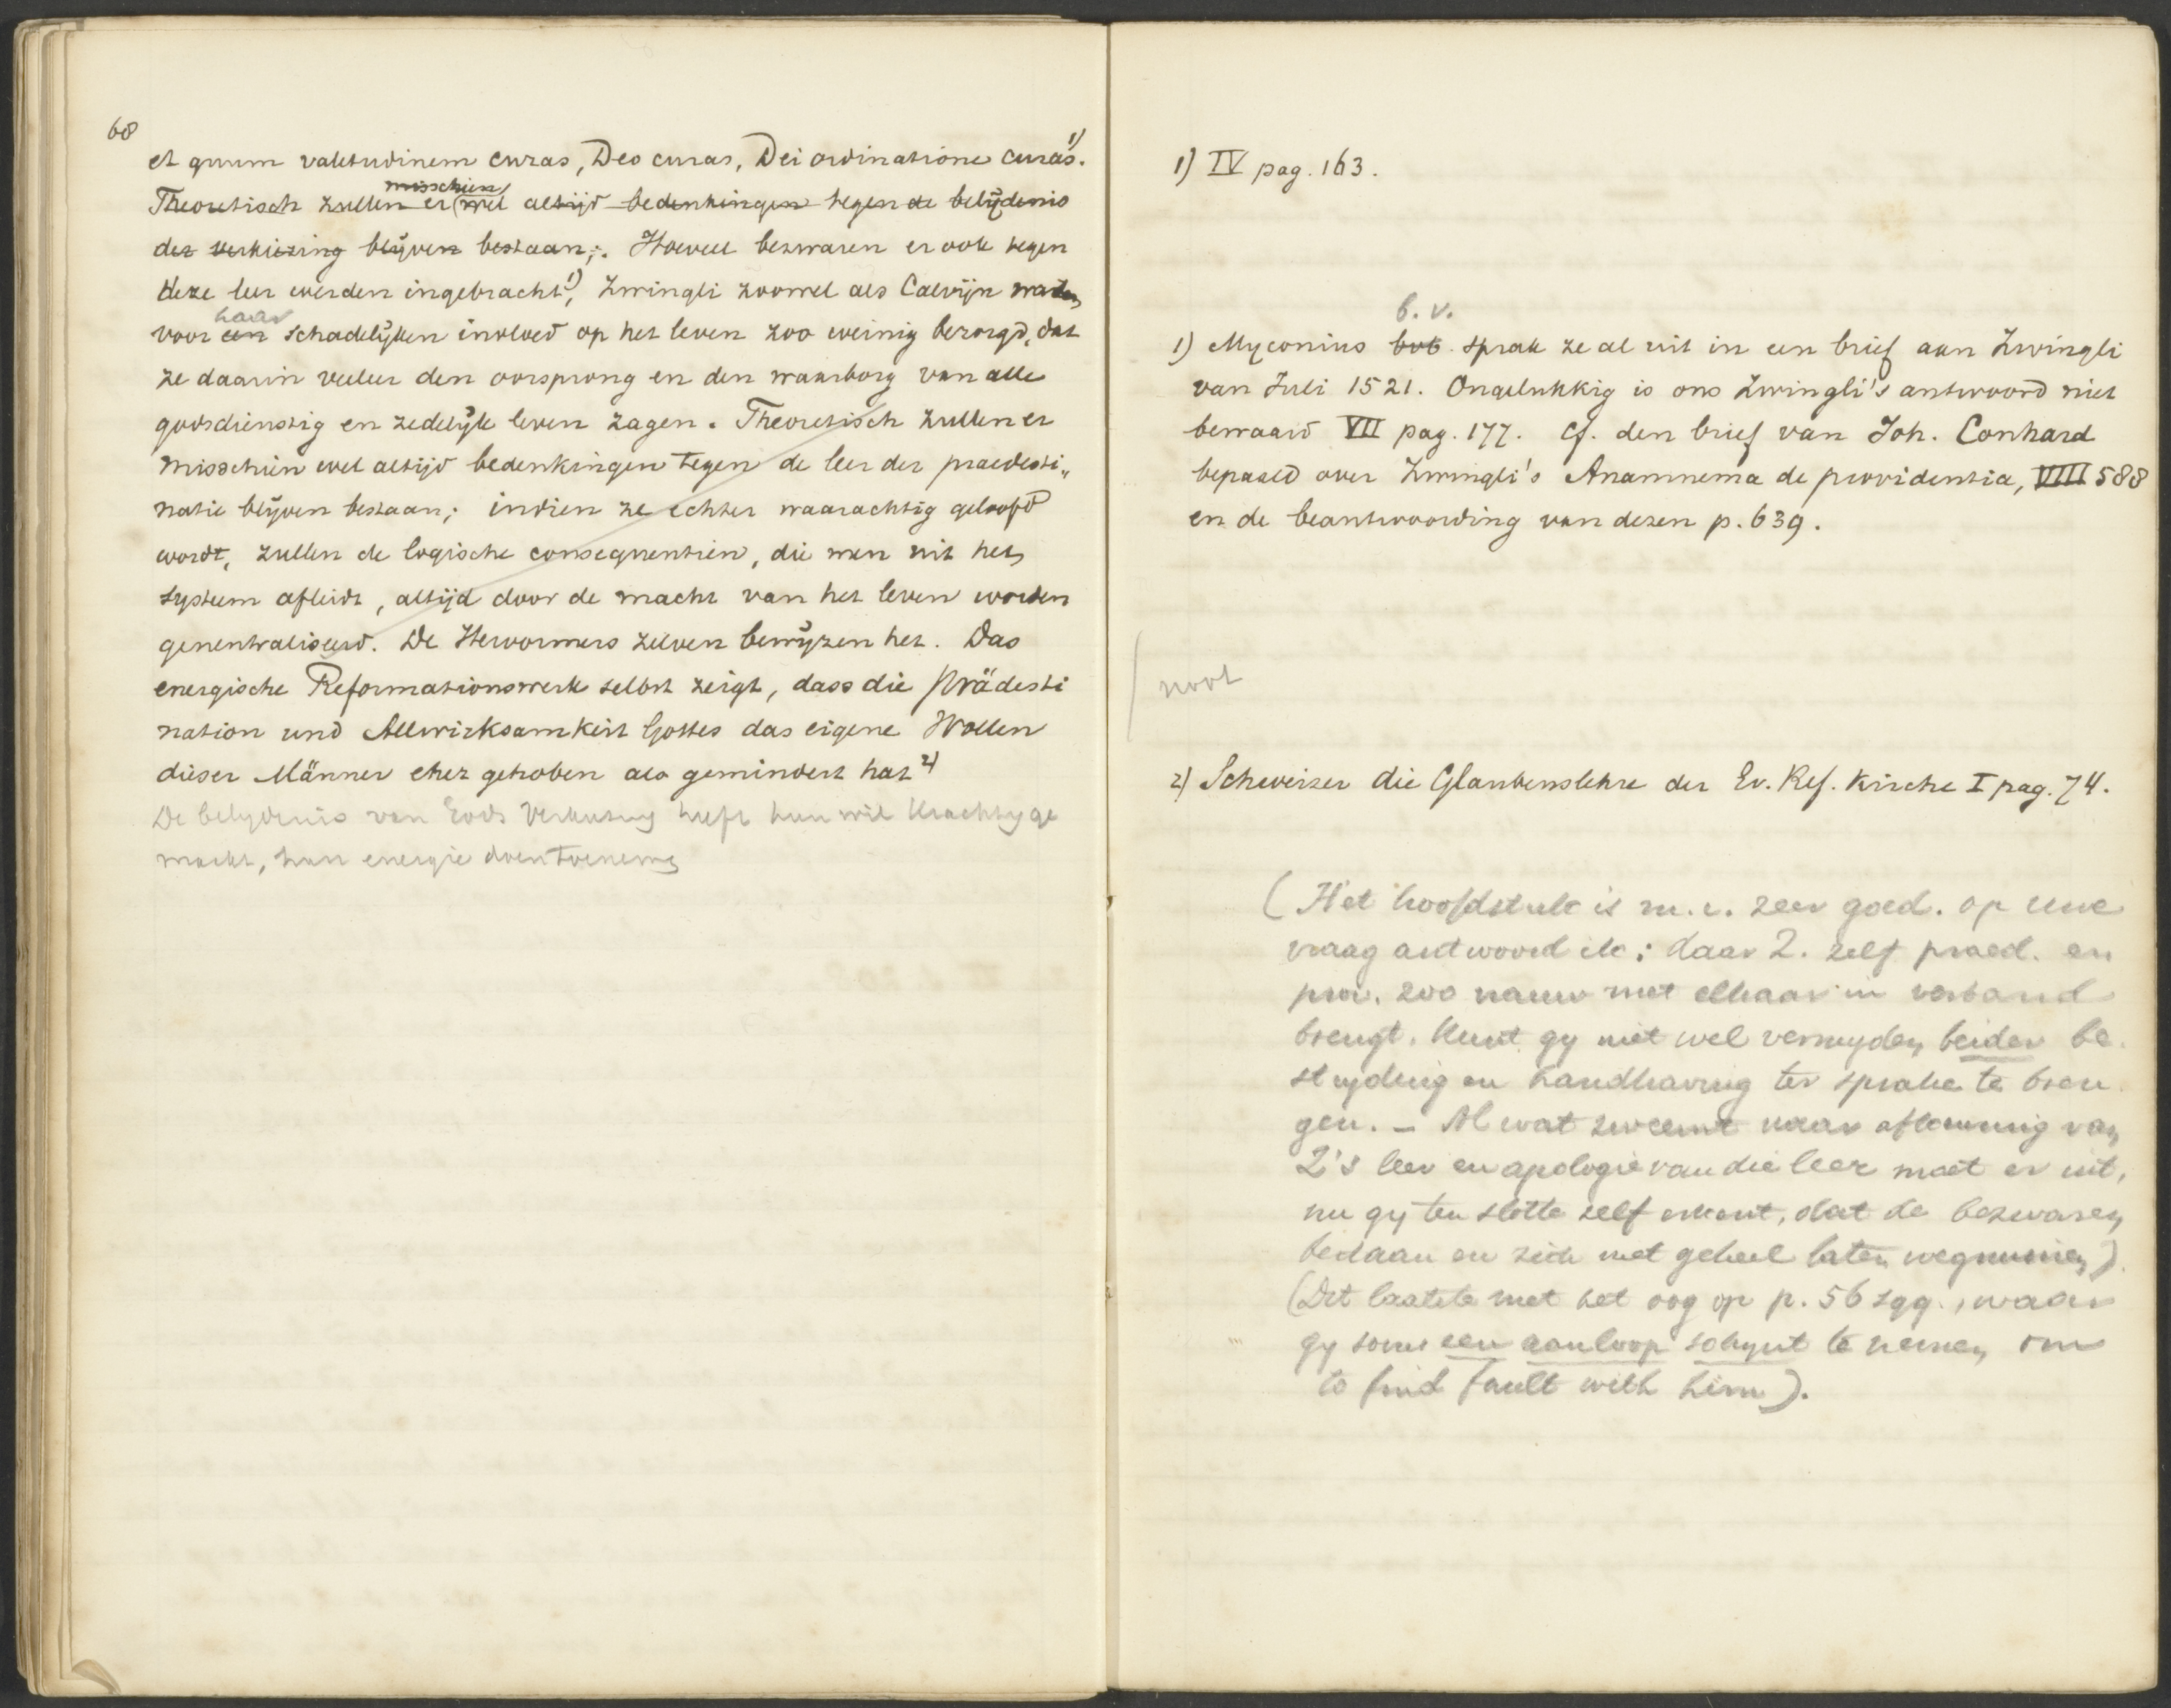 68
et quum valetudinem curas, Deo curas, Dei ordinatione curas. 1)
misschien
Theoretisch zullen er (wel altijd bedenkingen tegen de belijdenis
der verkiezing blijven bestaan;. Hoeveel bezwaren er ook tegen
deze leer werden ingebracht 1), Zwingli zoowel als Calvijn waren
haar
voor een schadelijken invloed op het leven zoo weinig bezorgd, dat
ze daarin veeleer den oorsprong en den waarborg van alle
godsdienstig en zedelijk leven zagen. Theoretisch zullen er
misschien wel altijd bedenkingen tegen de leer der praedesti„
natie blijven bestaan; indien ze echter waarachtig geloofd
wordt, zullen de logische consequentiën, die men uit het
systeem afleidt, altijd door de macht van het leven worden
geneutraliseerd. De Hervormers zelven bewijzen het. Das
energische Reformationswerk selbst zeigt, dass die Prädesti
nation und Allwirksamkeit Gottes das eigene Wollen
dieser Männer eher gehoben als gemindert hat 2)
De belydenis van Gods verkiezing heeft hun wil krachtig ge
maakt, hun energie doen toenemen
1) IV pag. 163.
b. v.
1) Myconius bvb. sprak ze al uit in een brief aan Zwingli
van Juli 1521. Ongelukkig is ons Zwingli's antwoord niet
bewaard VII pag. 177. Cf. den brief van Joh. Conhard
bepaald over Zwingli's Anamnema de providentia, VIII 588
en de beantwoording van dezen p. 639.
noot
2) Schweizer die Glaubenslehre der Ev. Ref. Kirche I pag. 74.
(Het hoofdstuk is m. i. zeer goed. op uwe
vraag antwoord ik: daar Z. zelf praed. en
prov. zoo nauw met elkaar in verband
brengt. kunt gy niet wel vermyden beider be
stryding en handhaving ter sprake te bren
gen. – Al wat zweemt naar afkeuring van
Z's leer en apologie van die leer moet er uit,
nu gy ten slotte zelf erkent, dat de bezwaren
bestaan en zich niet geheel laten wegnemen)
(Dit laatste met het oog op p. 56 sqq., waar
gy soms een aanloop schynt te nemen om
to find fault with him).